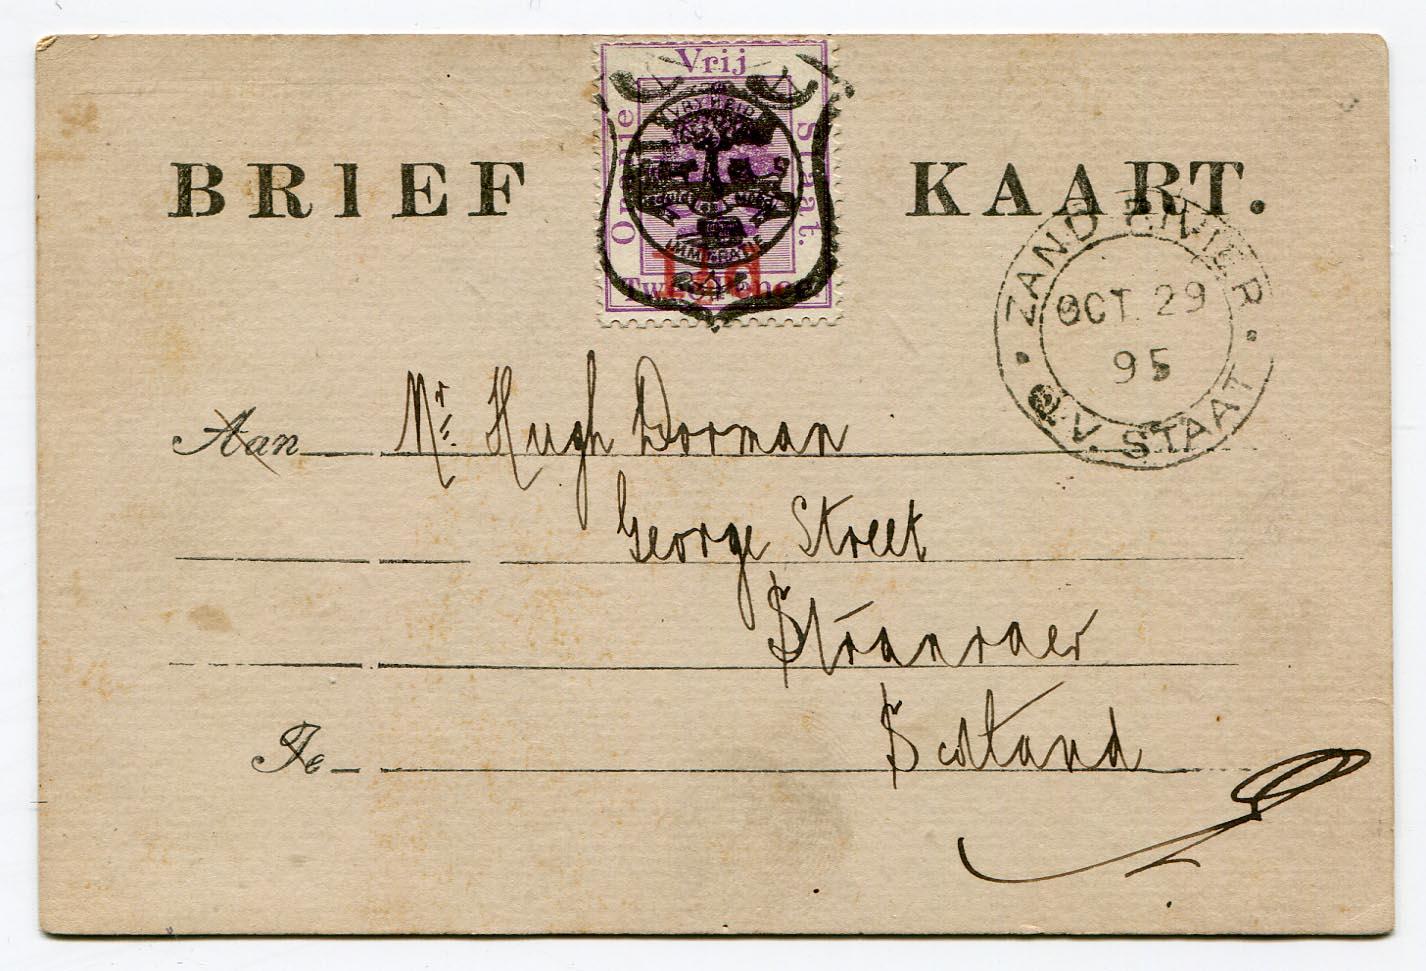 Vrij
Oranje Staat.
VRYHEID
IMMIGRATIE
1½d
Twee Pence
BRIEF KAART.
ZAND RIVIER
OCT. 29
95
O.V. STAAT
Aan Mr. Hugh Dorman
George Street
Stranraer
Te Scotland